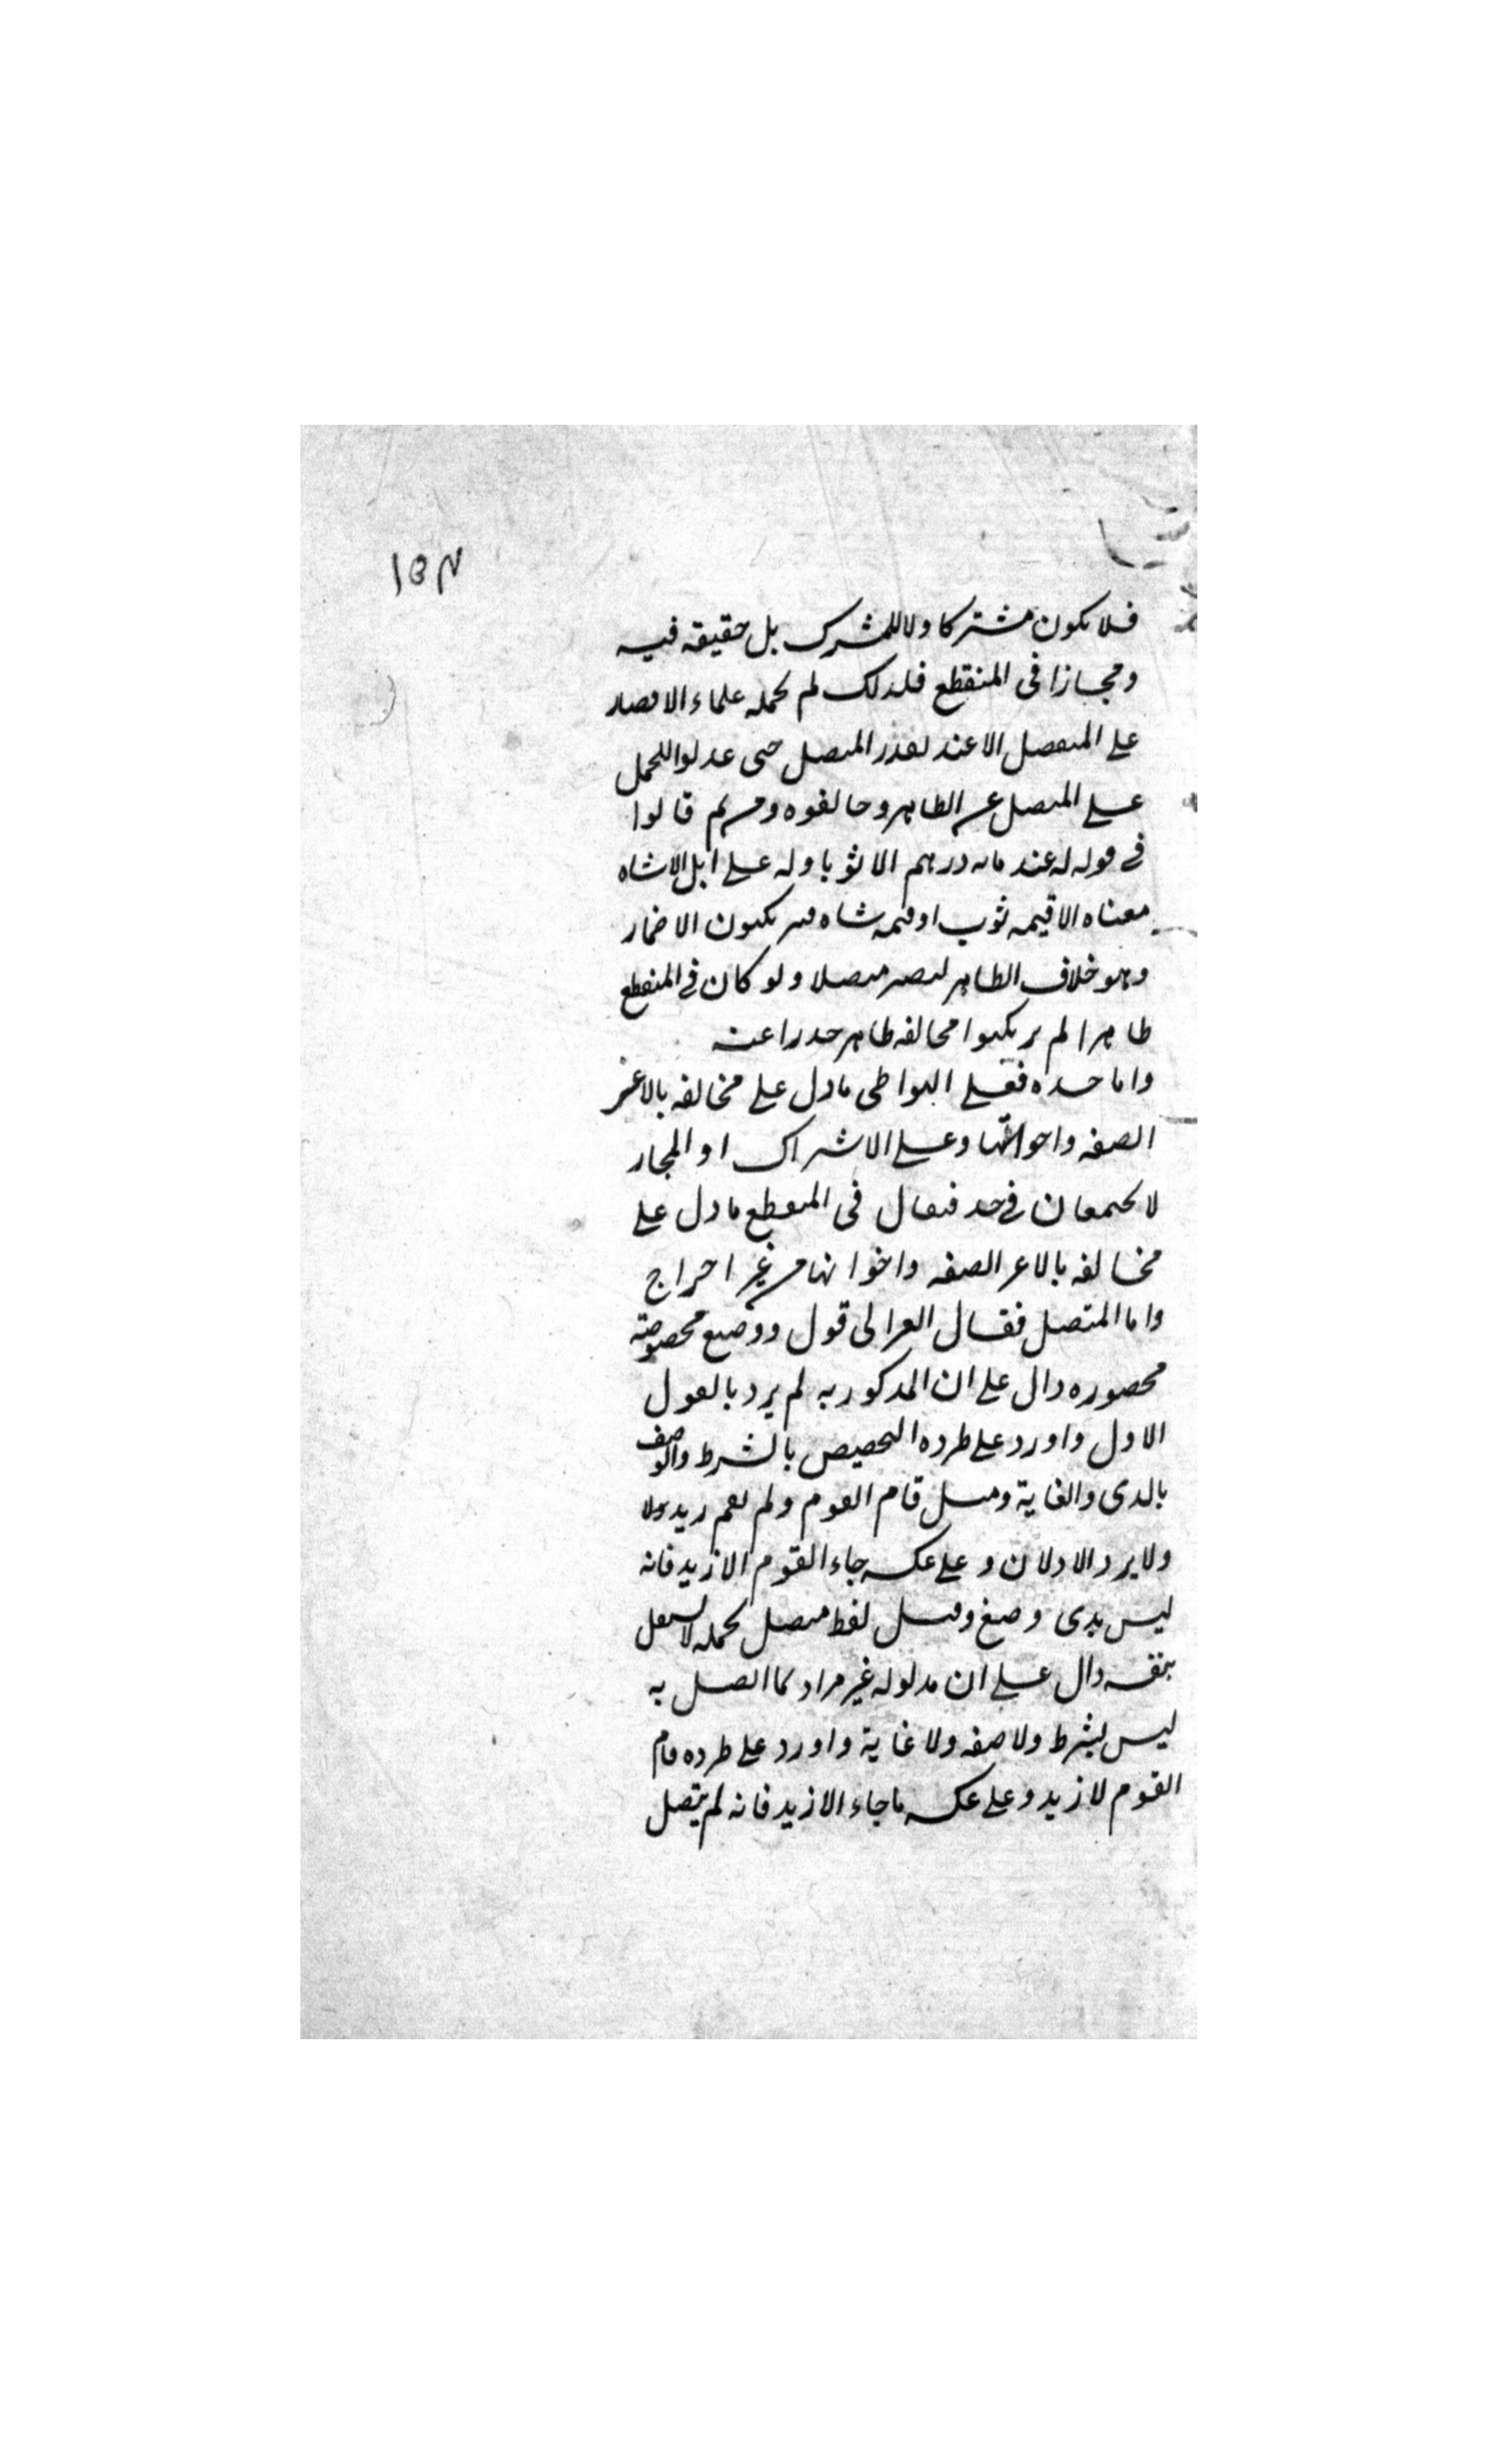 ١٥٣
فلا يكون مشتركا ولا للمشترك بل حقيقة فيه
ومجازا في المنقطع فلذلك لم يحمله علماء الامصار
على المنفصل الا عند تعذر المتصل حتى عدلوا للحمل
على المتصل عن الظاهر وخالفوه ومن ثم قالوا
في قوله له عندي مائة درهم الا ثوبا وله علي ابل الا شاه
معناه الا قيمة ثوب او قيمة شاه فيرتكبون الاضمار
وهو خلاف الظاهر ليصير متصلا ولو كان في المنقطع
ظاهرا لم يرتكبوا مخالفة ظاهر حذرا عنه
واما حده فعلى التواطئ ما دل على مخالفة بالا غير
الصفة واخواتها وعلى الاشتراك او المجاز
لا يجتمعان في حد فيقال في المنقطع ما دل على
مخالفة بالا غير الصفة واخواتها من غير اخراج
واما المتصل فقال الغزالي قول ذو صيغ مخصوصة
محصورة دال على ان المذكور به لم يرد بالقول
الاول واورد على طرده التخصيص بالشرط والوصف
بالذي والغاية ومثل قام القوم ولم يقم زيد
ولا يرد الاولان وعلى عكسه جاء القوم الا زيد فانه
ليس بذي صيغ وقيل لفظ متصل بجملة لا يستقل
بنفسه دال على ان مدلوله غير مراد بما اتصل به
ليس بشرط ولا صفة ولا غاية واورد على طرده قام
القوم لا زيد وعلى عكسه ما جاء الا زيد فانه لم يتصل